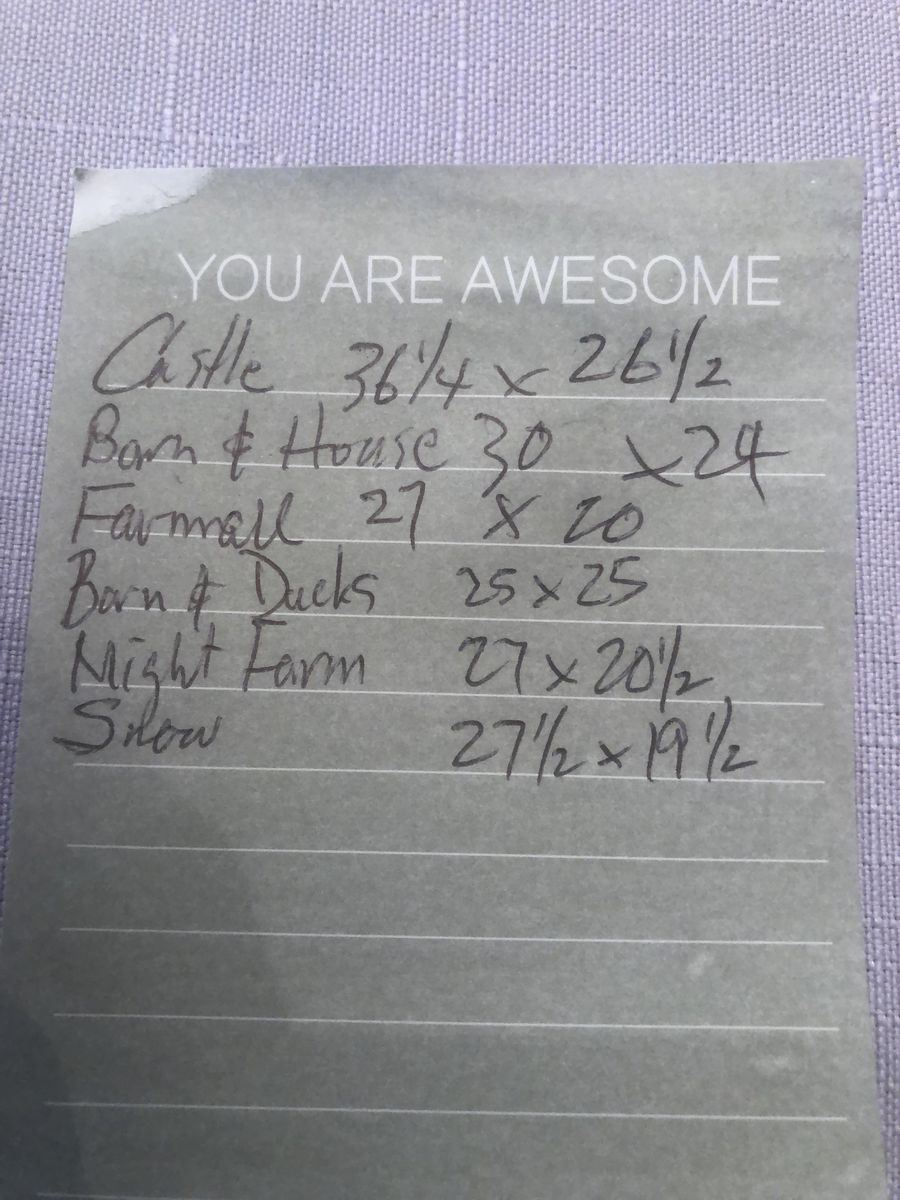 YOU ARE AWESOME
Castle 36 1/4 x 26 1/2
Barn & House 30 x 24
Farmall 27 x 20
Barn & Ducks 25 x 25
Night Farm 27 x 20 1/2
Snow 27 1/2 x 19 1/2